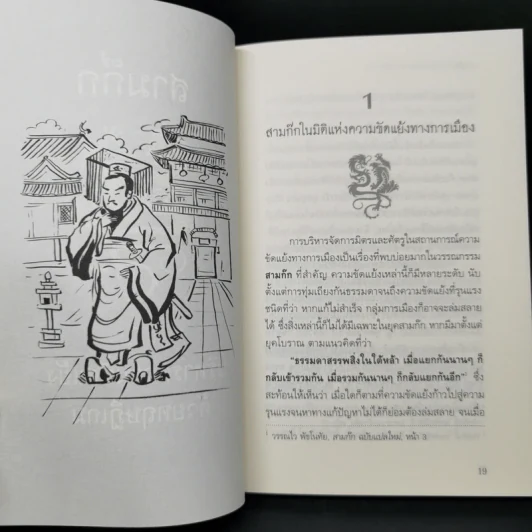 สามก๊ก
1
สามก๊กในมิติแห่งความขัดแย้งทางการเมือง
การบริหารจัดการมิตรและศัตรูในสถานการณ์ความ
ขัดแย้งทางการเมืองเป็นเรื่องที่พบบ่อยมากในวรรณกรรม
สามก๊ก ที่สำคัญ ความขัดแย้งเหล่านี้ก็มีหลายระดับ นับ
ตั้งแต่การทุ่มเถียงกันธรรมดาจนถึงความขัดแย้งที่รุนแรง
ชนิดที่ว่า หากแก้ไม่สำเร็จ กลุ่มการเมืองก็อาจจะล่มสลาย
ได้ ซึ่งสิ่งเหล่านี้ก็ไม่ได้มีเฉพาะในยุคสามก๊ก หากมีมาตั้งแต่
ยุคโบราณ ตามแนวคิดที่ว่า
"ธรรมดาสรรพสิ่งในใต้หล้า เมื่อแยกกันนานๆ ก็
กลับเข้ารวมกัน เมื่อรวมกันนานๆ ก็กลับแยกกันอีก"¹ ซึ่ง
สะท้อนให้เห็นว่า เมื่อใดก็ตามที่ความขัดแย้งก้าวไปสู่ความ
รุนแรงจนหาทางแก้ปัญหาไม่ได้ก็ย่อมต้องล่มสลาย จนเมื่อ
¹ วรรณไว พัธโนทัย, สามก๊ก ฉบับแปลใหม่, หน้า 3.
19